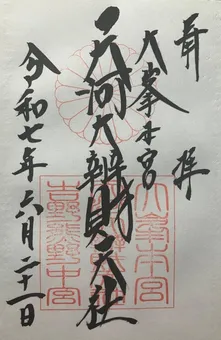 奉拝
大峯本宮
天河大辨財天社
令和七年六月二十一日
大峯本宮
吉野熊野中宮